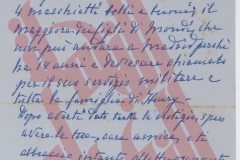 4 maschietti belli e buoni, il
maggiore dei figli di Mondy che
non può andare a Madrid perchè
ha 18 anni e dev'essere chiamato
per il suo servizio militare e
tutta la famiglia di Henry
Dopo averti dato tutte le notizie, spero
avere le tue, cara amica, e ti
abbraccio intanto